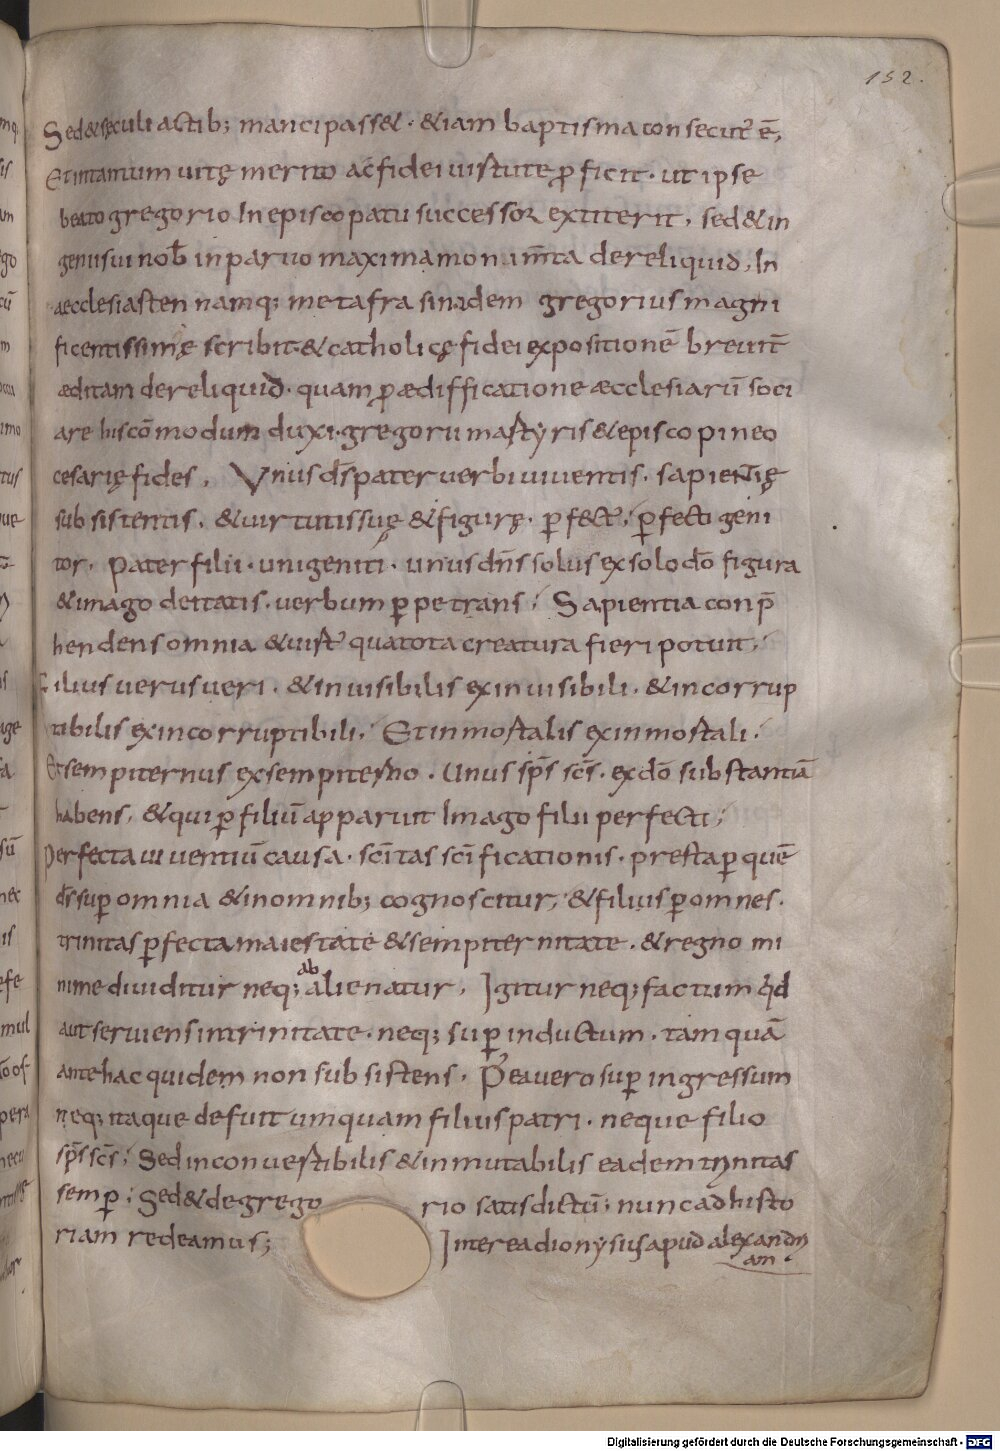 152.
Sed & sęculi actib; mancipass&. &iam baptisma consecut' ē,
Et intantum uitę merito ac fidei uirtute ꝓficit. ut ipse
beato gregorio In episcopatu successor extiterit, sed & in
genii sui nob̄ in paruo maxima monim̄ta dereliquid, In
aecclesiasten namq; metafrasin idem gregorius magni
ficentissimę scribit. & catholicę fidei expositionē breuit̄
æditam dereliquid. quam ꝓ ædifficatione æcclesiarū soci
are his cōmodum duxi. gregorii martẏris & episcopi neo
cesarię fides, Vnus d̄s pater uerbi uiuentis. sapientię
subsistentis, & uirtutis suę & figurę. ꝑfect', ꝑfecti geni
tor, pater filii. unigeniti. unus dn̄s solus ex solo dō figura
& imago deitatis. uerbum ꝑpetrans, Sapientia conp̄
hendens omnia & uirt' qua tota creatura fieri potuit,
Filius uerus ueri. & inuisibilis ex inuisibili. & incorrup
tibilis ex incorruptibili, Et inmortalis ex inmortali.
Et sempiternus ex sempiterno. Unus sp̄s sc̄s. ex dō substantiā
habens, & qui ꝑ filiū apparuit Imago filii perfecti,
Perfecta uiuentiū causa. sc̄itas sc̄ificationis. presta ꝑ quē
d̄s suꝑ omnia & in omnib; cognoscitur, & filius ꝑ omnes.
trinitas ꝑfecta maiestate & sempiternitate. & regno mi
nime diuiditur neq; ab alienatur, Igitur neq; factum qd
aut seruiens in trinitate. neq; suꝑinductum. tamquā
antehac quidem non subsistens, Postea uero suꝑingressum
neq; itaque defuit umquam filius patri. neque filio
sp̄s sc̄s, Sed inconuertibilis & inmutabilis eadem trinitas
semꝑ; Sed & de grego rio satis dictū; nunc ad histo
riam redeamus; Interea dionẏsus apud alexandri
am.
Digitalisierung gefördert durch die Deutsche Forschungsgemeinschaft - DFG